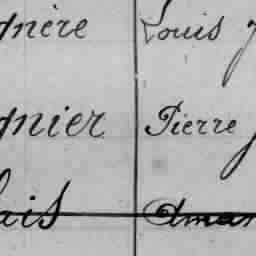 gnère Louis
gnier Pierre
ais Aman